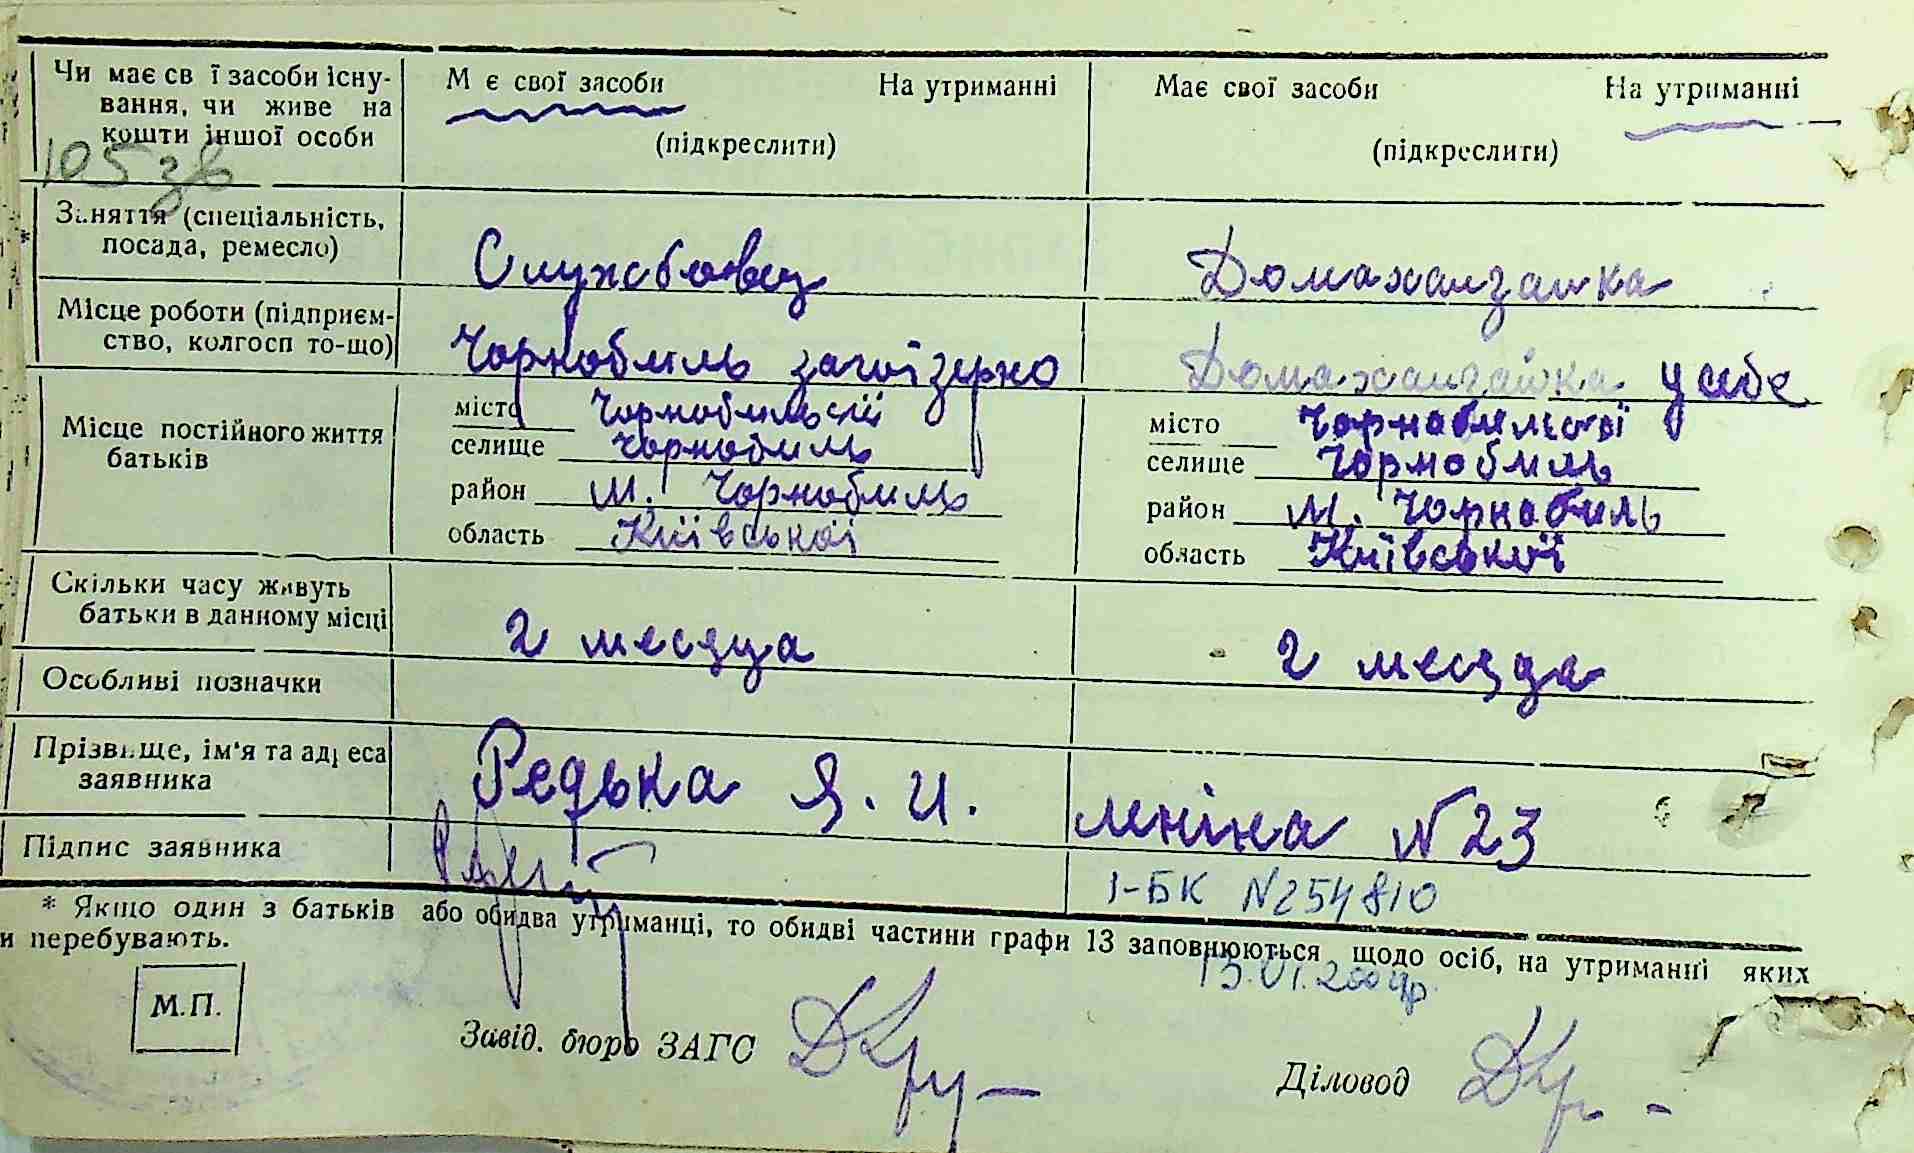 Чи має св ї засоби існу-
вання, чи живе на
кошти іншої особи
М є свої засоби На утриманні
(підкреслити)
Має свої засоби На утриманні
(підкреслити)
105 зв
Заняття (спеціальність,
посада, ремесло)
Службовец
Домахазайка
* Місце роботи (підприєм-
ство, колгосп то-що)
Чорнобиль заготзерно
Домахазайка у себе
Місце постійного життя
батьків
місто Чорнобильскії
селище Чорнобиль
район м. Чорнобиль
область Київської
місто Чорнобильської
селище Чорнобиль
район м. Чорнобиль
область Київської
Скільки часу живуть
батьки в данному місці
2 месяца
2 месяца
Особливі позначки
Прізвище, ім'я та адреса
заявника
Редька Я. И. леніна №23
Підпис заявника
І-БК №254810
* Якщо один з батьків або обидва утриманці, то обидві частини графи 13 заповнюються щодо осіб, на утриманні яких
и перебувають.
15.01.2004р.
М.П.
Завід. бюро ЗАГС
Діловод